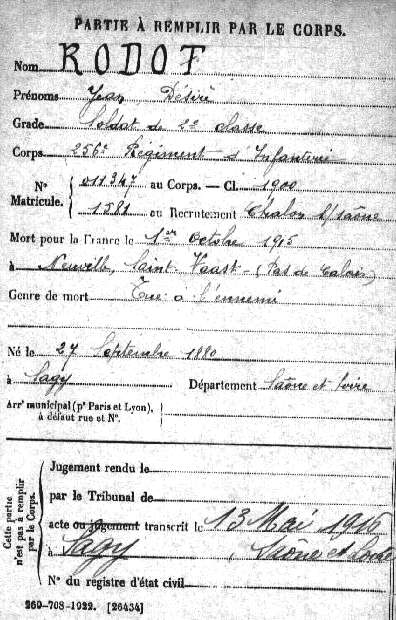 PARTIE À REMPLIR PAR LE CORPS.
Nom RODOT
Prénoms Jean Désiré
Grade Soldat de 2e classe
Corps 256e Régiment d'Infanterie
N° Matricule. 011347 au Corps. — Cl. 1900
1581 au Recrutement Chalon s/Saône
Mort pour la France le 1er octobre 1915
à Neuville, Saint-Vaast - (Pas de Calais)
Genre de mort Tué à l'ennemi
Né le 27 Septembre 1880
à Sagy Département Saône et Loire
Arrt municipal (pr Paris et Lyon),
à défaut rue et N°.
Cette partie n'est pas à remplir par le Corps.
Jugement rendu le
par le Tribunal de
acte ou jugement transcrit le 13 Mai 1916
à Sagy, Saône et Loire
N° du registre d'état civil
260-708-1922. [26434]